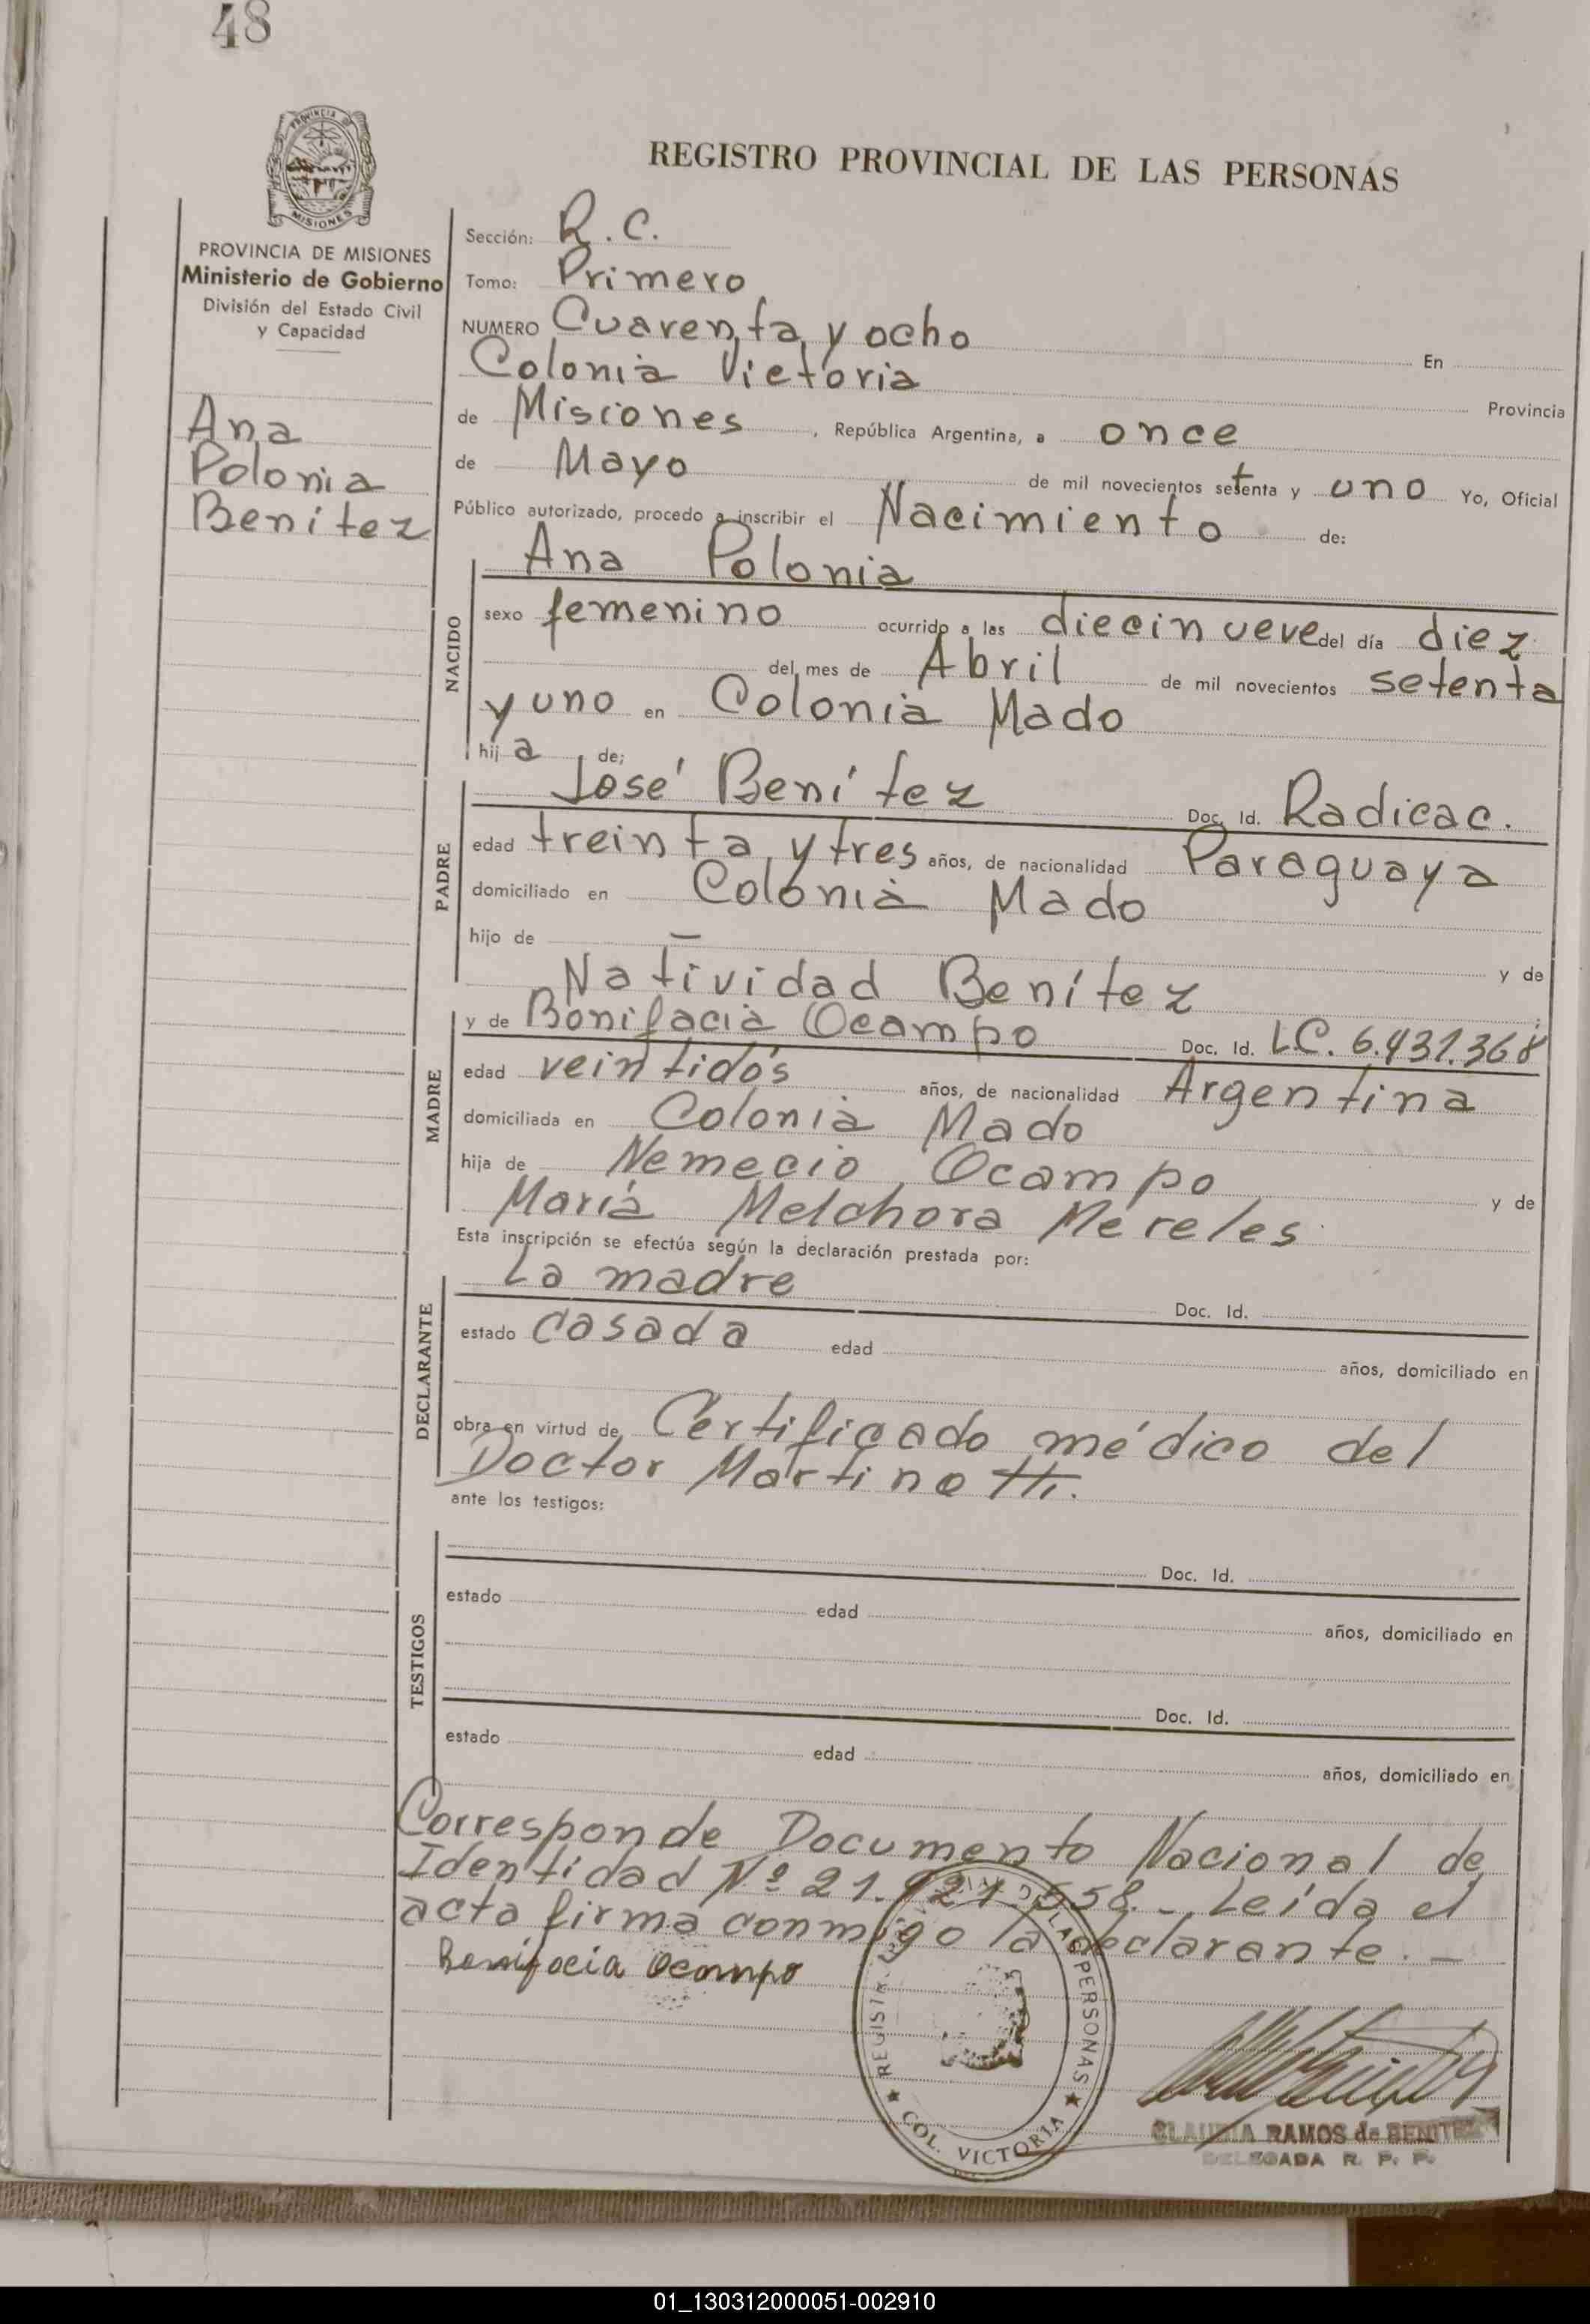 48
PROVINCIA DE MISIONES
REGISTRO PROVINCIAL DE LAS PERSONAS
PROVINCIA DE MISIONES
Ministerio de Gobierno
División del Estado Civil
y Capacidad
Ana
Polonia
Benítez
Sección: R.C.
Tomo: Primero
NUMERO Cuarenta y ocho En
Colonia Victoria Provincia
de Misiones, República Argentina, a once
de Mayo de mil novecientos setenta y uno Yo, Oficial
Público autorizado, procedo a inscribir el Nacimiento de:
NACIDO
Ana Polonia
sexo femenino ocurrido a las diecinueve del día diez
del mes de Abril de mil novecientos setenta
y uno en Colonia Mado
hija de;
PADRE
José Benítez Doc. Id. Radicac.
edad treinta y tres años, de nacionalidad Paraguaya
domiciliado en Colonia Mado
hijo de — y de
Natividad Benítez
MADRE
y de Bonifacia Ocampo Doc. Id. L.C. 6.431.368
edad veintidós años, de nacionalidad Argentina
domiciliada en Colonia Mado
hija de Nemecio Ocampo y de
María Melchora Méreles
Esta inscripción se efectúa según la declaración prestada por:
DECLARANTE
La madre Doc. Id.
estado casada edad años, domiciliado en
obra en virtud de Certificado médico del
Doctor Martinotti.
ante los testigos:
TESTIGOS
Doc. Id.
estado edad años, domiciliado en
Doc. Id.
estado edad años, domiciliado en
Corresponde Documento Nacional de
Identidad Nº 21. 558.- Leída el
acta firma conmigo la declarante.-
Bonifacia Ocampo
REGISTRO DE LAS PERSONAS
COL. VICTORIA
CLAUDIA RAMOS de BENITEZ
DELEGADA R. P. P.
01_130312000051-002910